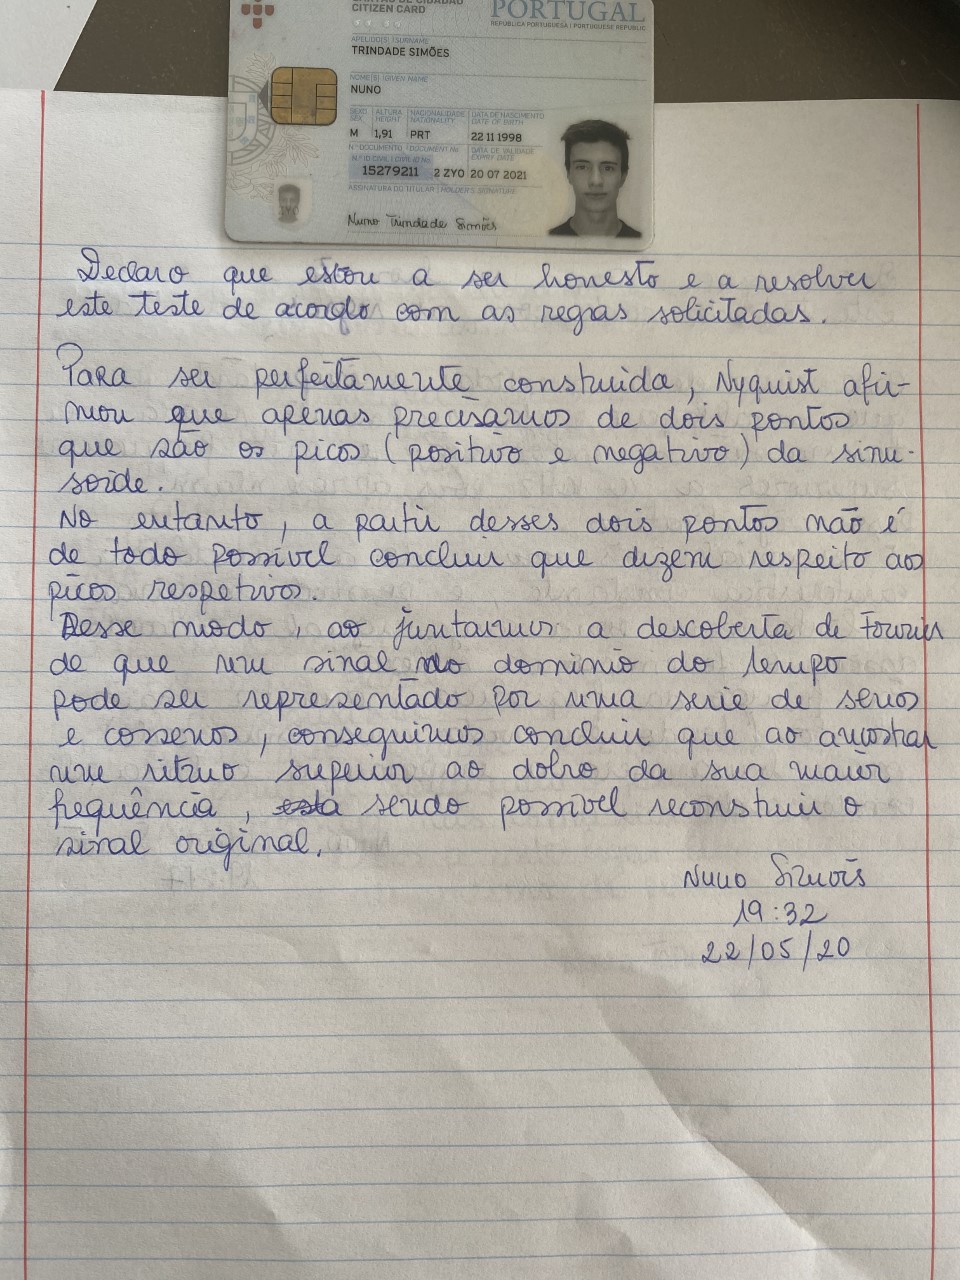 CARTÃO DE CIDADÃO
CITIZEN CARD
PORTUGAL
REPÚBLICA PORTUGUESA | PORTUGUESE REPUBLIC
APELIDO(S) | SURNAME
TRINDADE SIMÕES
NOME(S) | GIVEN NAME
NUNO
SEXO ALTURA NACIONALIDADE DATA DE NASCIMENTO
SEX HEIGHT NATIONALITY DATE OF BIRTH
M 1,91 PRT 22 11 1998
Nº DOCUMENTO | DOCUMENT No DATA DE VALIDADE
N.º ID CIVIL | CIVIL ID No EXPIRY DATE
15279211 2 ZYO 20 07 2021
ASSINATURA DO TITULAR | HOLDER'S SIGNATURE
Nuno Trindade Simões
Declaro que estou a ser honesto e a resolver
este teste de acordo com as regras solicitadas.
Para ser perfeitamente construida, Nyquist afir-
mou que apenas precisamos de dois pontos
que são os picos (positivo e negativo) da sinu-
soide.
No entanto, a partir desses dois pontos não é
de todo possível concluir que dizem respeito aos
picos respetivos.
Desse modo, ao juntarmos a descoberta de Fourier
de que um sinal no dominio do tempo
pode ser representado por uma serie de senos
e cossenos, conseguimos concluir que ao amostrar
um ritmo superior ao dobro da sua maior
frequência, está sendo possível reconstruir o
sinal original.
Nuno Simões
19:32
22/05/20